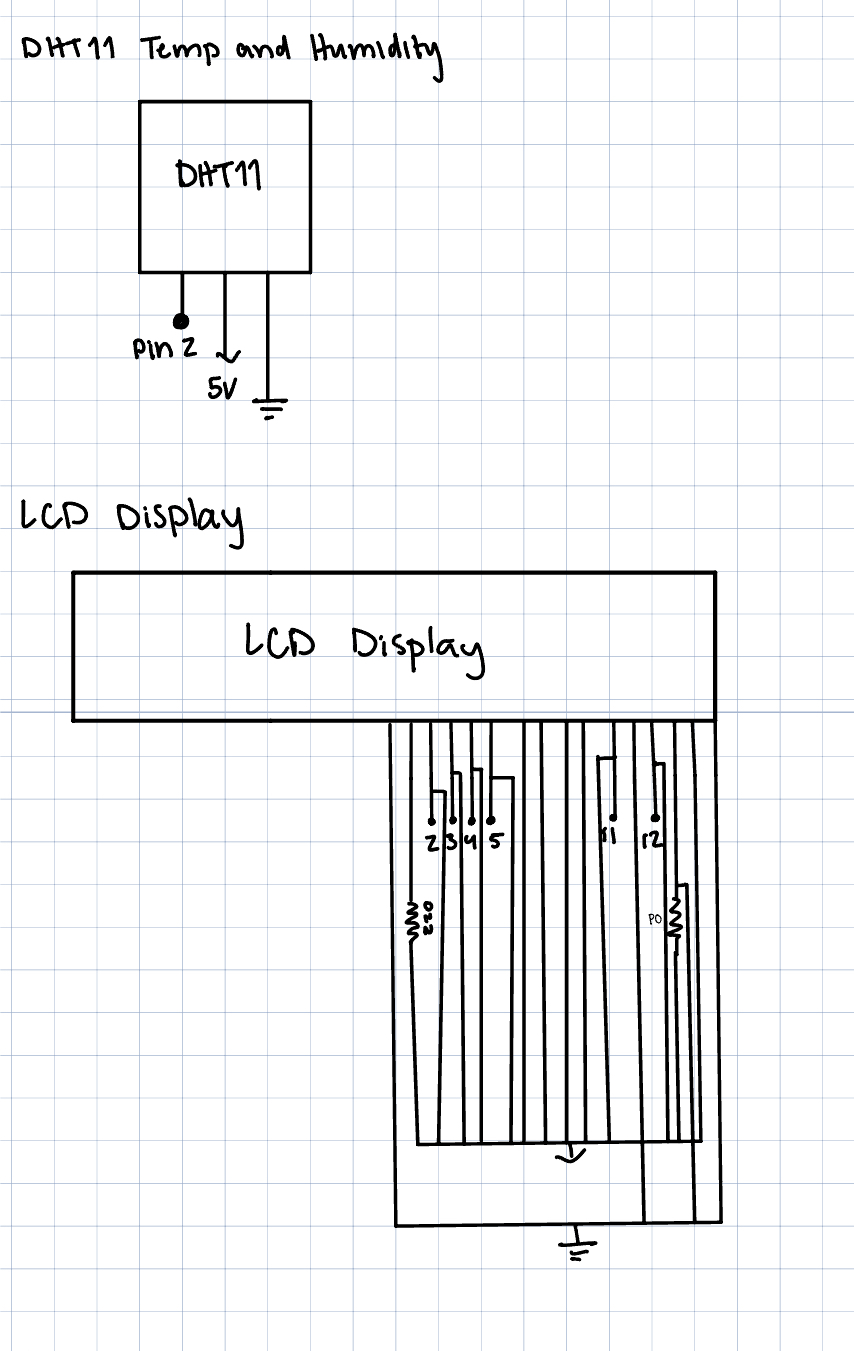 DHT11 Temp and Humidity
DHT11
Pin 2
5V
LCD Display
LCD Display
2 3 4 5 11 12
220
PO